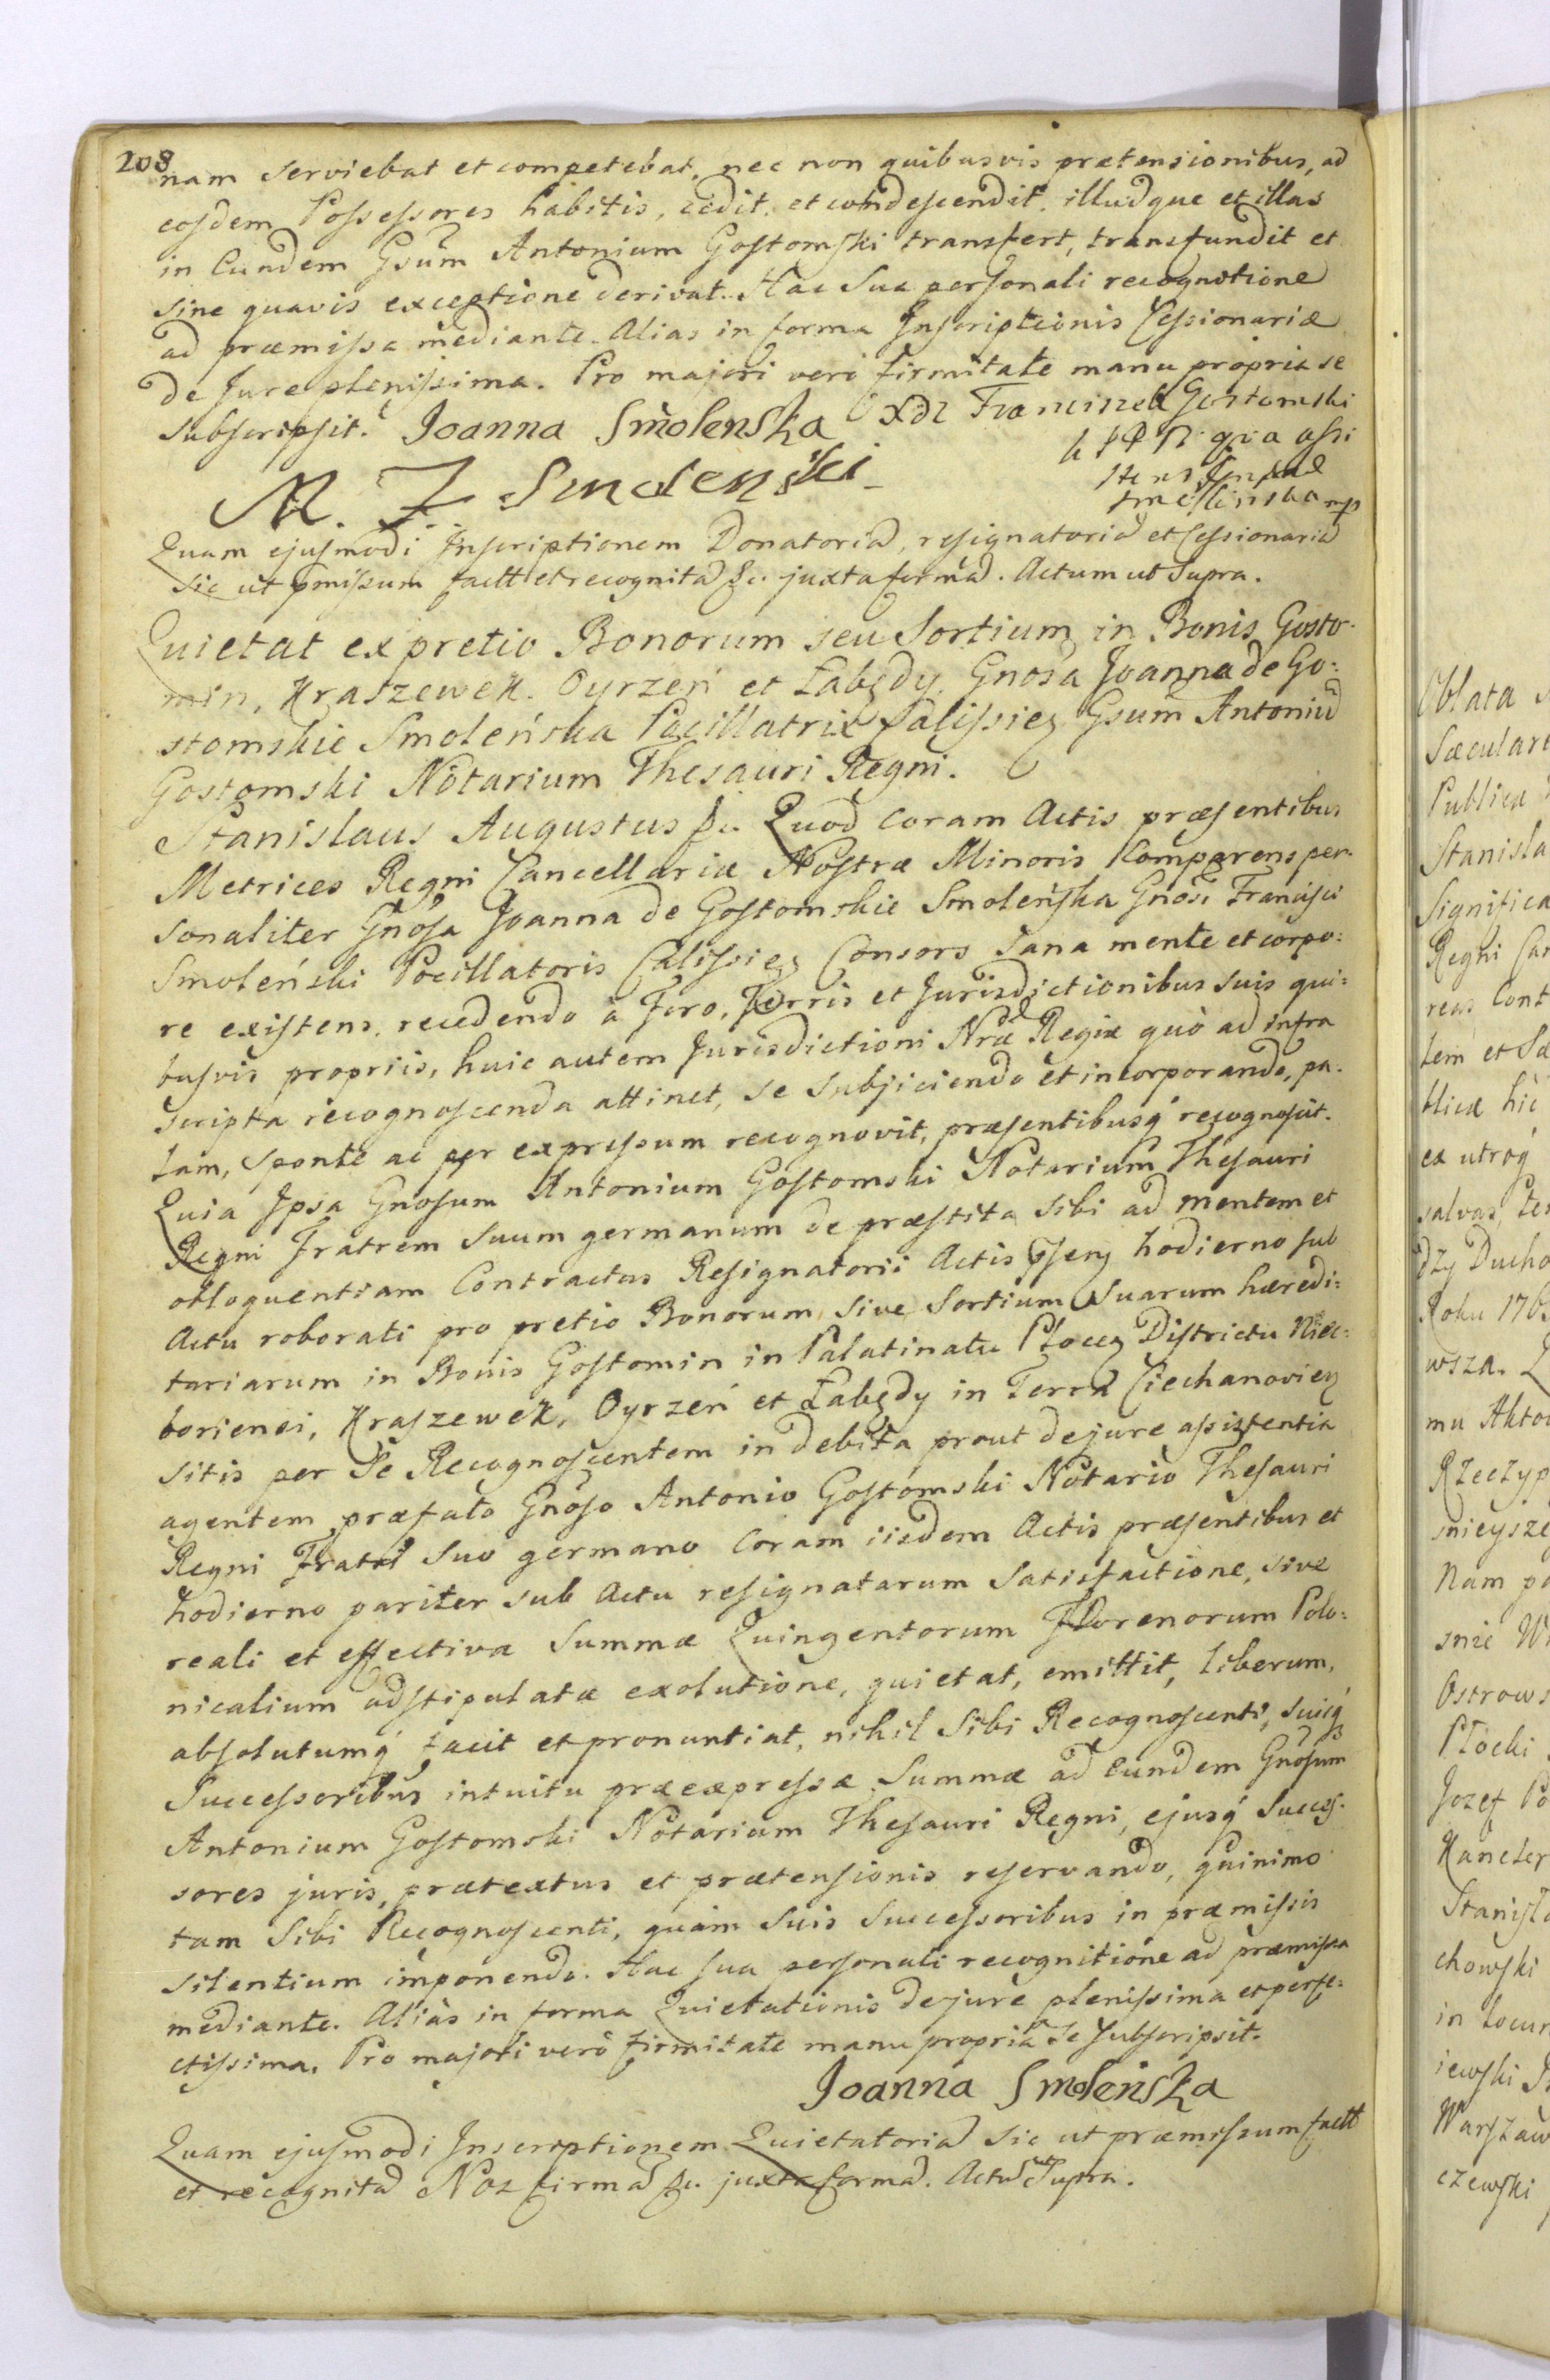 208
nam serviebat et competebat, nec non quibusvis prætensionibus, ad
eosdem Possessores habitis, cedit, et condescendit, illudque et illas
in Eundem Gsum Antonium Gostomski transfert, transfundit et
sine quavis exceptione derivat. Hac Sua personali recognitione
ad præmissa mediante. Alias in forma Inscriptionis Cessionariæ
de Jure plenissima. Pro majori vero firmitate manu propria se
subscripsit. Joanna Smolenska Xdz Franciszek Gostomski
qua assi
stens
M. Z Smolenski
Quam ejusmodi Inscriptionem Donatoria, resignatoria et Cessionaria
sic ut pmissum factt et recognita &c. juxta forma. Actum ut Supra.
Quietat ex pretio Bonorum seu Sortium in Bonis Gosto-
min, Kraszewek, Oyrzeń et Łabędy, Gnosa Joanna de Go-
stomskie Smoleńska Pocillatrix Calissien Gsum Antoniu
Gostomski Notarium Thesauri Regni.
Stanislaus Augustus &c. Quod coram Actis præsentibus
Metrices Regni Cancellariæ Nostræ Minoris Comparens per-
sonaliter Gnosa Joanna de Gostomskie Smoleńska Gnosi Francisci
Smoleński Pocillatoris Calissien Consors sana mente et corpo=
re existens, recedendo à Foro, Terris et Jurisdictionibus suis qui=
busvis propriis, huic autem Jurisdictioni Nræ Regiæ quò ad infra
scripta recognoscenda attinet, se subjiciendo et incorporando, pa-
lam, sponte ac per expressum recognovit, præsentibusq recognoscit.
Quia Ipsa Gnosum Antonium Gostomski Notarium Thesauri
Regni Fratrem suum germanum de præstita sibi ad mentem et
obloquentiam Contractus Resignatorii Actis psen hodierno sub
Actu roborati pro pretio Bonorum sive Sortium Suarum hæredi=
tariarum in Bonis Gostomin in Palatinatu Płocen Districtu Nied-
boriensi, Kraszewek, Oyrzeń et Łabędy in Terra Ciechanovien
sitis per Se Recognoscentem in debita prout de jure assistentia
agentem præfato Gnoso Antonio Gostomski Notario Thesauri
Regni Fratri suo germano coram iisdem Actis præsentibus et
hodierno pariter sub Actu resignatarum Satisfactione, sive
reali et effectiva Summæ Quingentorum Florenorum Polo=
nicalium adstipulatæ exolutione, quietat, emittit, liberum,
absolutumq facit et pronuntiat, nihil Sibi Recognoscenti, suisq
Successoribus intuitu præexpressæ Summæ ad Eundem Gnosum
Antonium Gostomski Notarium Thesauri Regni, ejusq Succes-
sores juris, prætextus et prætensionis reservando, quinimo
tam Sibi Recognoscenti, quàm Suis Successoribus in præmissis
silentium imponendo. Hac sua personali recognitione ad præmissa
mediante. Aliàs in forma Quietationis de jure plenissima et perfe=
ctissima. Pro majori verò firmitate manu propria se subscripsit.
Joanna Smoleńska
Quam ejusmodi Inscriptionem Quietatoria sic ut præmissum factt
et recognita Nos firma &c. juxta forma. Actu ut Supra.
Oblata
Sæculare
Publica
Stanisla
Significa
Regni Can
reas Cont
tem et Sæ
blicæ hic
ex utroq
salvas
dzy Ducho
Roku 176
wsza.
mu Aktow
Rzeczyp
snieysze
Nam po
snie
Ostrows
Płocki
Jozef Po
Kancler
Stanisła
chowski
in locum
iewski
Warszaw
czewski